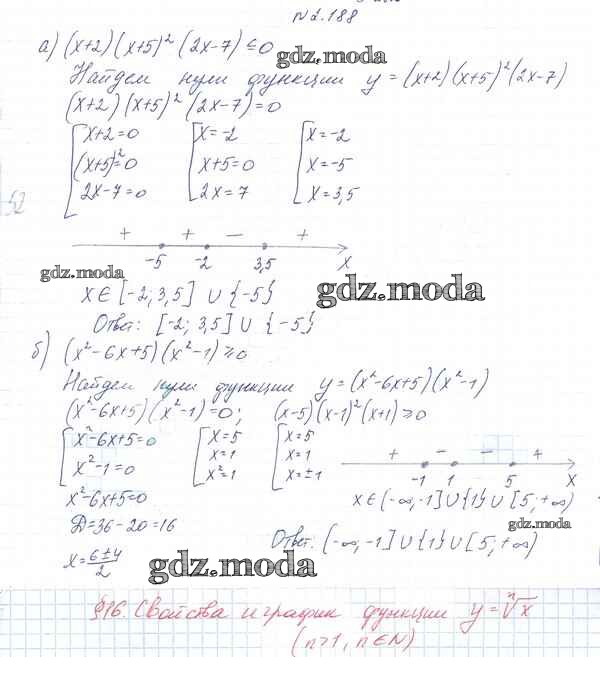 N 2.188
а) (x+2)(x+5)² (2x-7) ≤ 0
gdz.moda
Найдем нули функции y = (x+2)(x+5)²(2x-7)
(x+2)(x+5)² (2x-7) = 0
[ x+2=0 [ x=-2 [ x=-2
(x+5)²=0 x+5=0 x=-5
2x-7=0 2x=7 x=3,5
52
+ + - +
-5 -2 3,5 x
gdz.moda
x ∈ [-2; 3,5] ∪ {-5}
gdz.moda
Ответ: [-2; 3,5] ∪ {-5}
б) (x²-6x+5)(x²-1) ≥ 0
Найдем нули функции y = (x²-6x+5)(x²-1)
(x²-6x+5)(x²-1)=0; (x-5)(x-1)²(x+1) ≥ 0
[ x²-6x+5=0 [ x=5 [ x=5
x=1 x=1
x²-1=0 x²=1 x=±1
+ - - +
-1 1 5 x
x²-6x+5=0 x∈(-∞,-1]∪{1}∪[5;+∞)
D=36-20=16
gdz.moda
Ответ. (-∞,-1]∪{1}∪[5;+∞)
x = (6±4)/2
gdz.moda
§16. Свойства и график функции y = ⁿ√x
(n>1, n∈N)